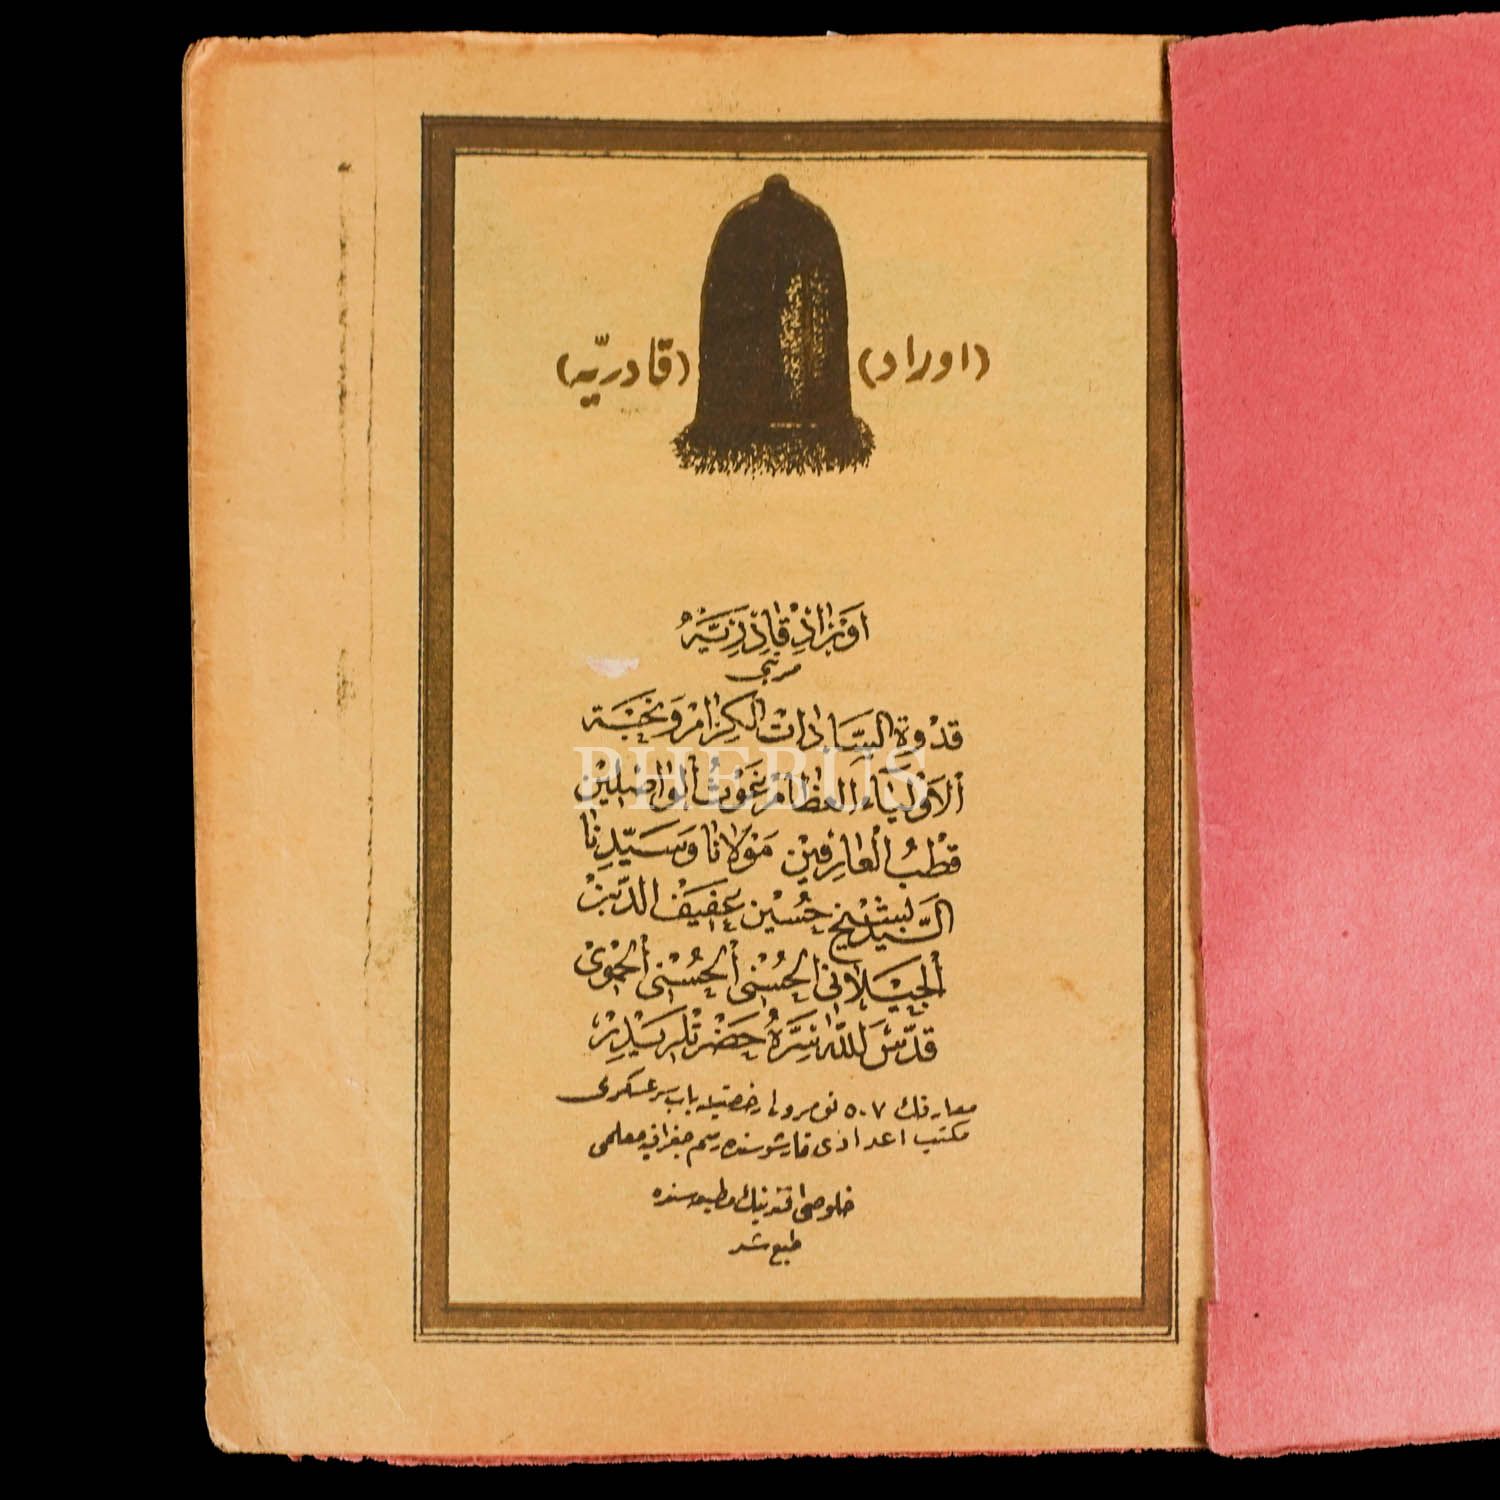 (اوراد) (قادريّه)
اَوْرَادِ قَادِرِيَّهْ
مرتبى
قُدْوَةِ السَّادَاتِ الكِرَامْ وَنُخْبَةِ
اْلاَوْلِيَاءِ الْعِظَامْ غَوْثُ الْوَاصِلِيْنْ
PHEBUS
قُطْبُ الْعَارِفِيْنْ مَوْلاَنَا وَسَيِّدِنَا
السَّيِّدْ الشَّيْخْ حُسَيْنْ عَفِيفُ الدِّيْنْ
اَلْجَيْلاَنِى الْحُسْنِى اَلْحُسَيْنِى اَلْحَمَوِىْ
قَدَّسَ اللّٰهُ سِرَّهُ حَضْرَتْلَرِيْدِرْ
معارفك ٥٠٧ نومرولى رخصتيله باب سرعسكرى
مكتب اعدادى قارشوسنده رسم جغرافيه معلمى
خلوصى افندينك مطبعه سنده
طبع شد